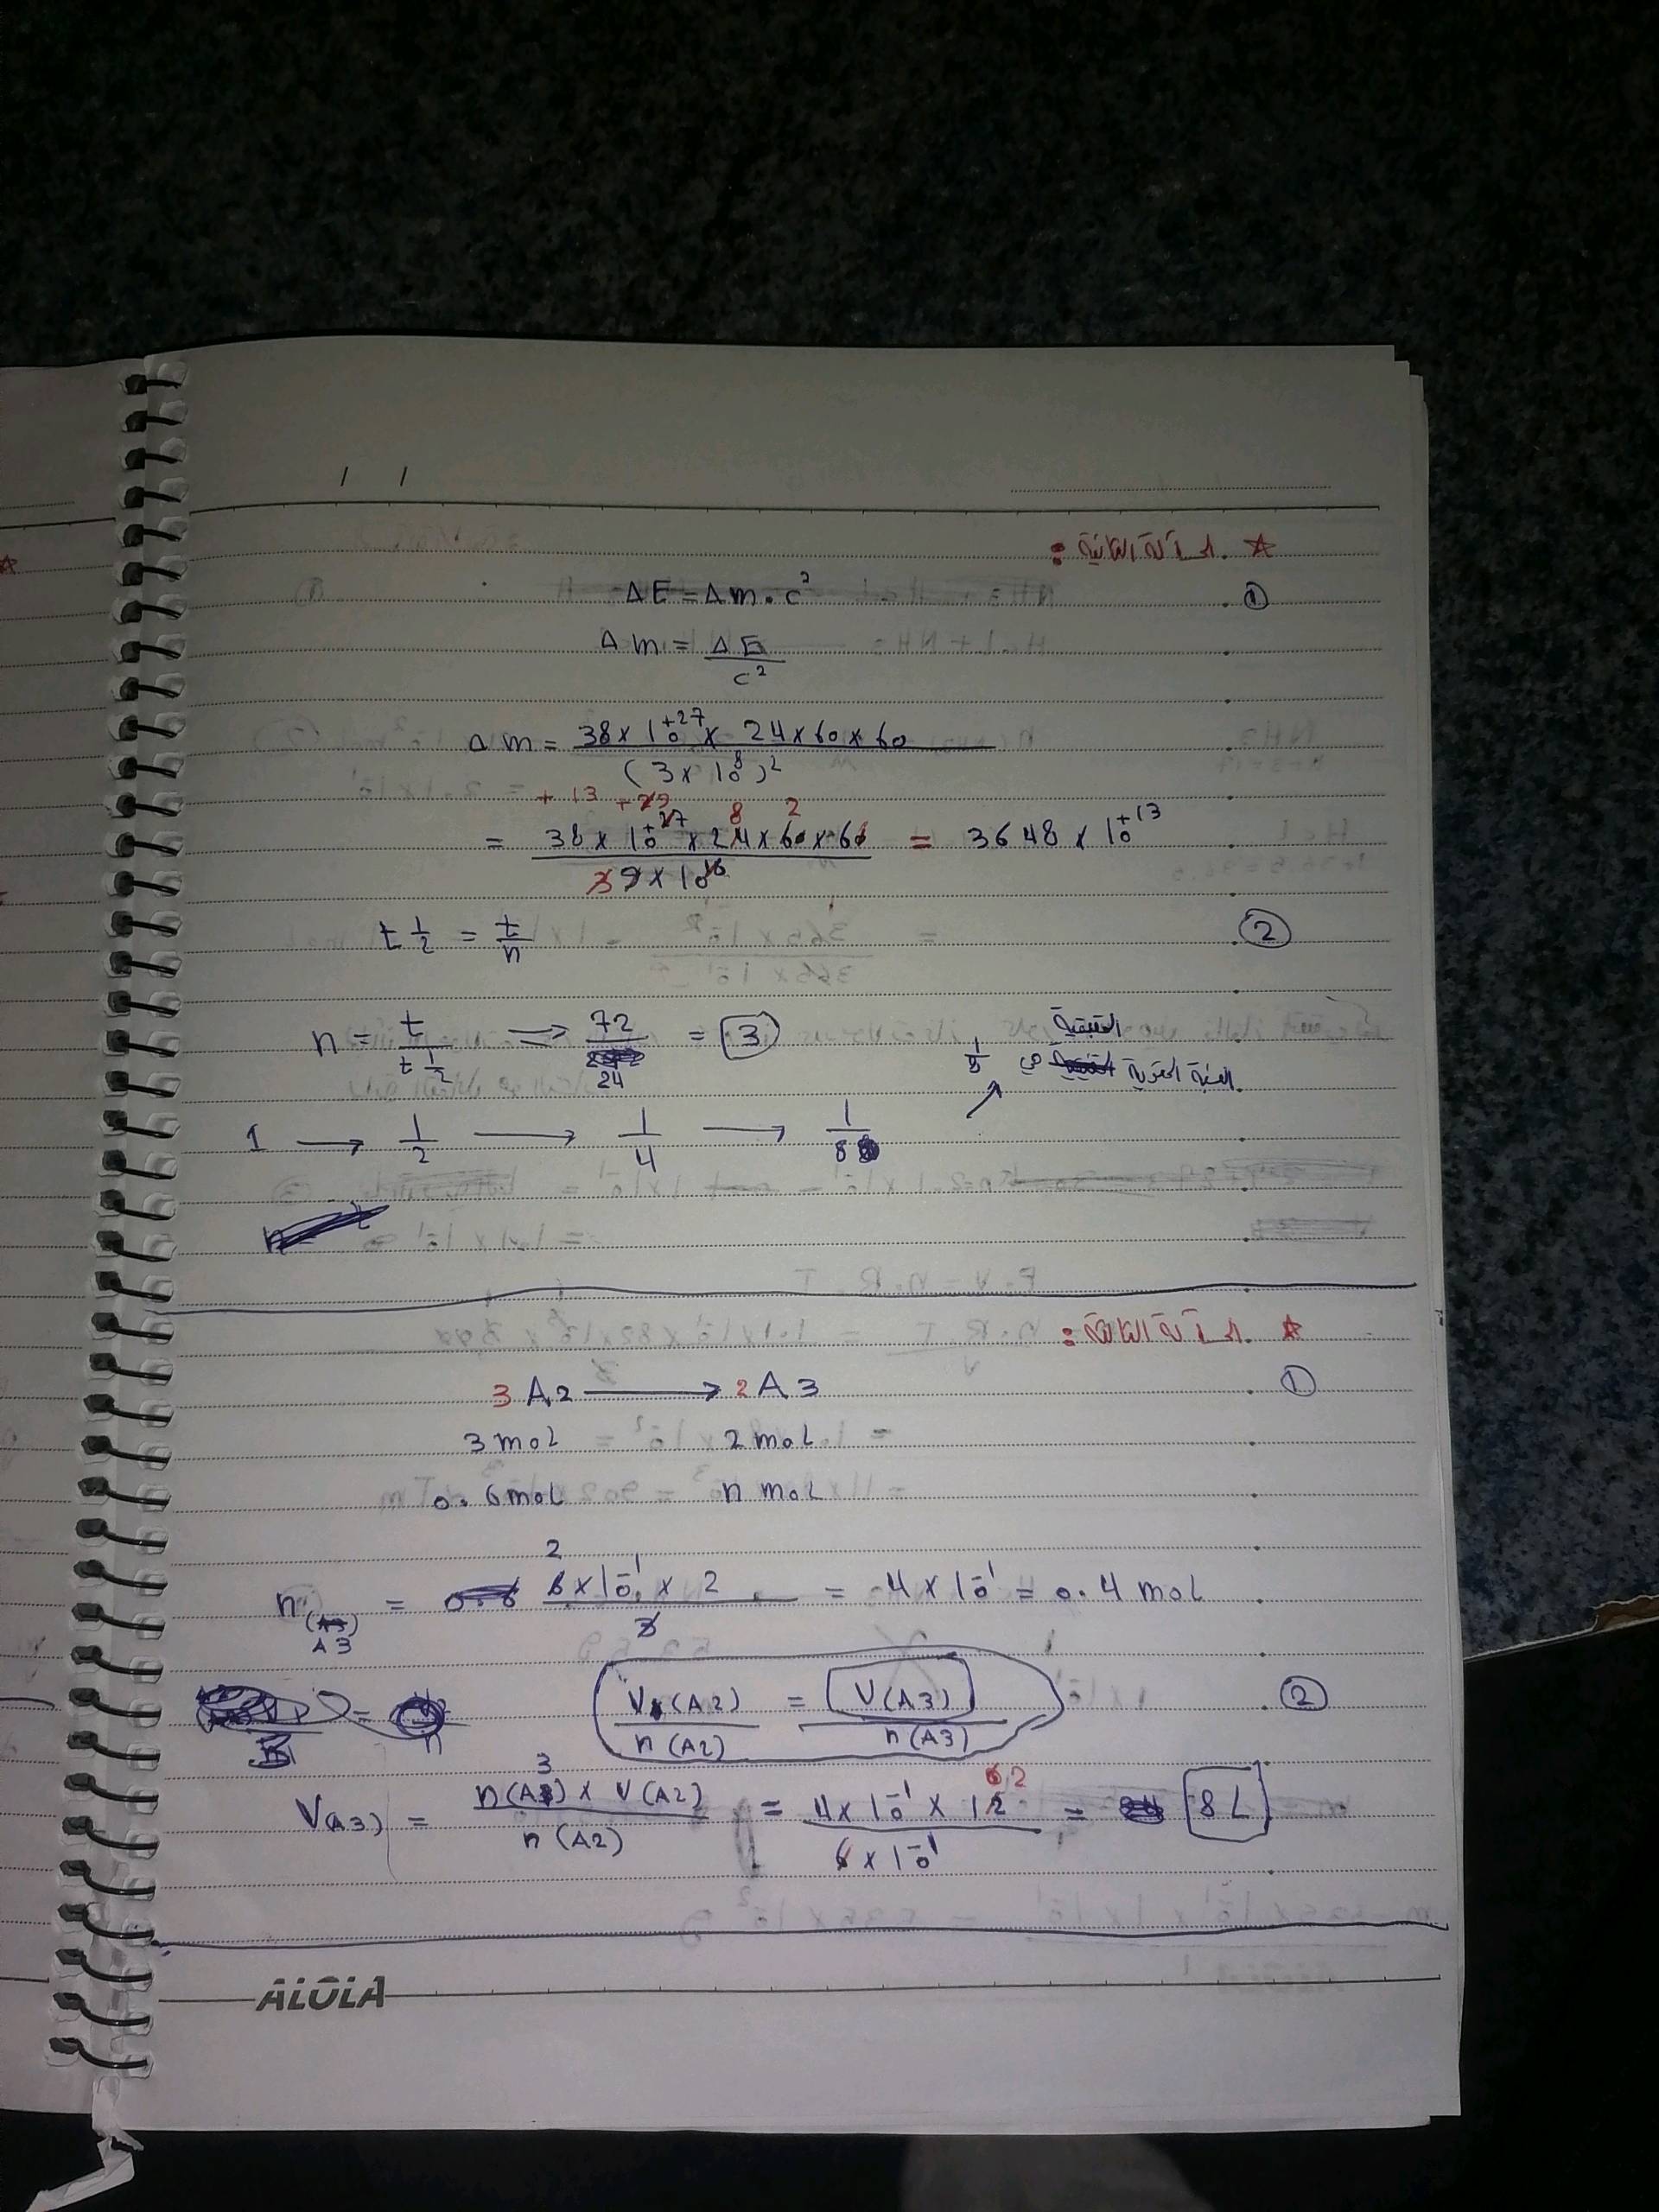 / /
★ المسألة الثانية :
① ΔE = Δm . c²
Δm = ΔE / c²
Δm = 38 × 10⁺²⁷ × 24 × 60 × 60 / (3 × 10⁸)²
+ 13 + 29 8 2
= 38 × 10⁺²⁷ × 24 × 60 × 60 / 9 × 10¹⁶ = 3648 × 10⁺¹³
② t ½ = t / n
n = t / t ½ ⟹ 72 / 24 = 3
الحقيقية
النسبة المئوية هي
1 → 1/2 → 1/4 → 1/8
★ المسألة الثالثة :
① 3 A2 → 2 A3
3 mol 2 mol
0.6 mol n mol
n (A3) = 6 × 10⁻¹ × 2 / 3 = 4 × 10⁻¹ = 0.4 mol
② V (A2) / n (A2) = V (A3) / n (A3)
V(A3) = n (A3) × V (A2) / n (A2) = 4 × 10⁻¹ × 12 / 6 × 10⁻¹ = 8 L
ALOLA